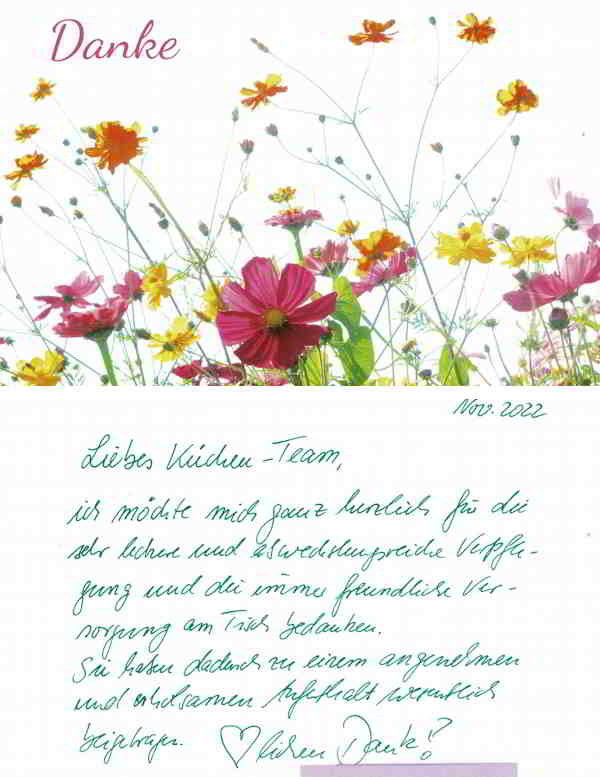 Danke
Nov. 2022
Liebes Küchen-Team,
ich möchte mich ganz herzlich für die
sehr leckere und abwechslungsreiche Verpfle-
gung und die immer freundliche Ver-
sorgung am Tisch bedanken.
Sie haben dadurch zu einem angenehmen
und erholsamen Aufenthalt wesentlich
beigetragen. ♡lichen Dank!